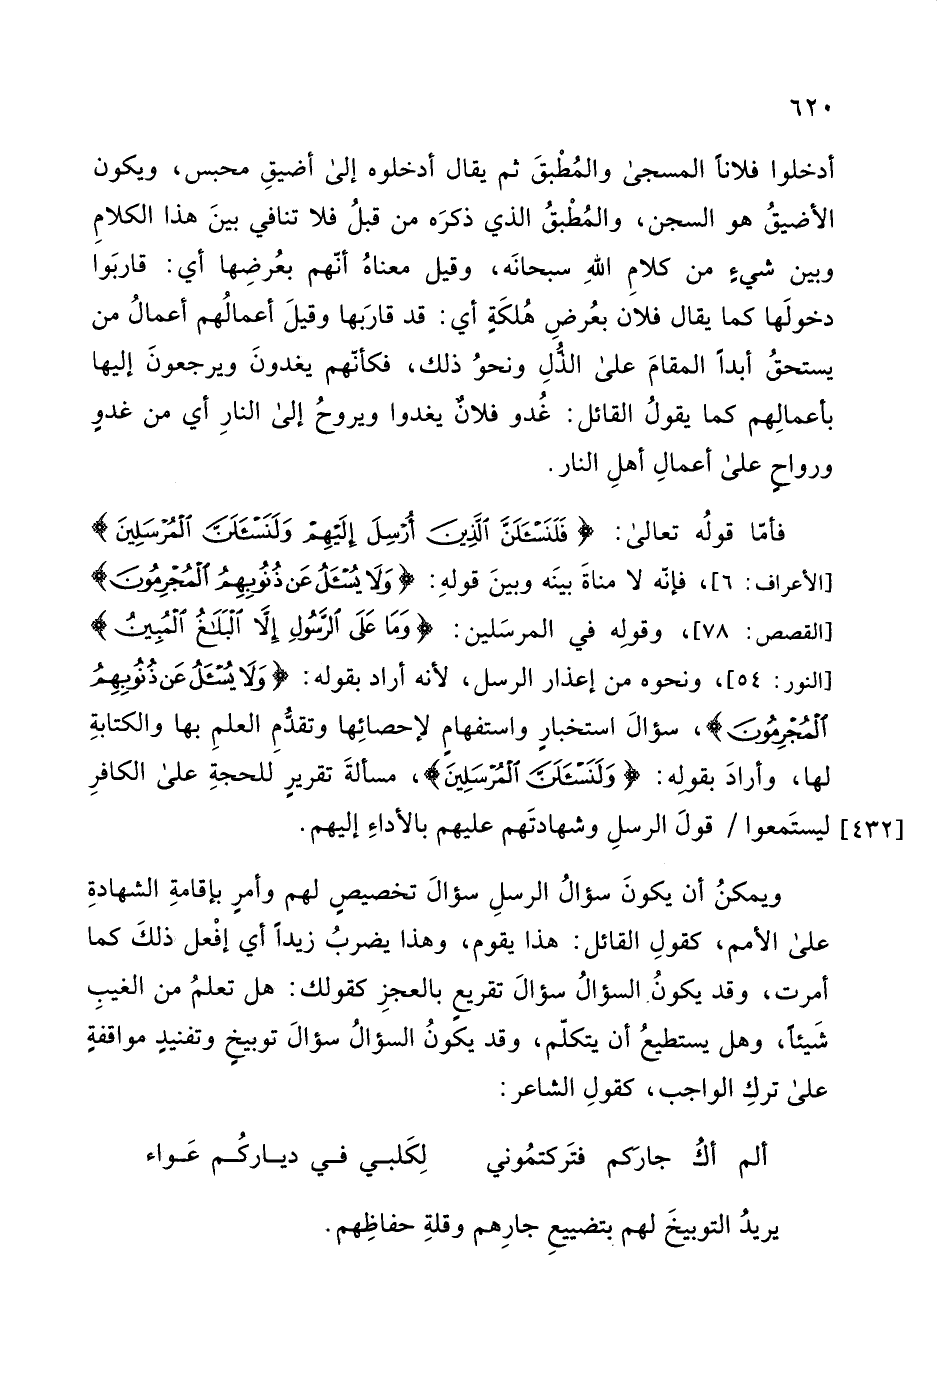 ٦٢٠
أدخلوا فلاناً المسجىٰ والمُطْبقَ ثم يقال أدخلوه إلىٰ أضيقِ محبس، ويكون
الأضيقُ هو السجن، والمُطْبقُ الذي ذكرَه من قبلُ فلا تنافي بينَ هذا الكلامِ
وبين شيءٍ من كلامِ اللهِ سبحانَه، وقيل معناهُ أنّهم بعُرضِها أي: قاربَوا
دخولَها كما يقال فلان بعُرضِ هُلكَةٍ أي: قد قاربَها وقيلَ أعمالُهم أعمالُ من
يستحقُ أبداً المقامَ علىٰ الذُّلِ ونحوُ ذلك، فكأنّهم يغدونَ ويرجعونَ إليها
بأعمالِهم كما يقولُ القائل: غُدو فلانٌ يغدوا ويروحُ إلىٰ النارِ أي من غدوٍ
ورواحٍ علىٰ أعمالِ أهلِ النار.
فأمّا قولُه تعالىٰ: ﴿فَلَنَسْـَٔلَنَّ ٱلَّذِينَ أُرْسِلَ إِلَيْهِمْ وَلَنَسْـَٔلَنَّ ٱلْمُرْسَلِينَ﴾
[الأعراف: ٦]، فإنّه لا مناةَ بينَه وبينَ قولهِ: ﴿وَلَا يُسْـَٔلُ عَن ذُنُوبِهِمُ ٱلْمُجْرِمُونَ﴾
[القصص: ٧٨]، وقولِه في المرسَلين: ﴿وَمَا عَلَى ٱلرَّسُولِ إِلَّا ٱلْبَلَٰغُ ٱلْمُبِينُ﴾
[النور: ٥٤]، ونحوه من إعذار الرسل، لأنه أراد بقوله: ﴿وَلَا يُسْـَٔلُ عَن ذُنُوبِهِمُ
ٱلْمُجْرِمُونَ﴾، سؤالَ استخبارٍ واستفهامٍ لإحصائِها وتقدُّمِ العلمِ بها والكتابةِ
لها، وأرادَ بقولِه: ﴿وَلَنَسْـَٔلَنَّ ٱلْمُرْسَلِينَ﴾، مسألةَ تقريرٍ للحجةِ علىٰ الكافرِ
[٤٣٢] ليستَمعوا / قولَ الرسلِ وشهادتَهم عليهم بالأداءِ إليهم.
ويمكنُ أن يكونَ سؤالُ الرسلِ سؤالَ تخصيصٍ لهم وأمرٍ بإقامةِ الشهادةِ
علىٰ الأمم، كقولِ القائل: هذا يقوم، وهذا يضربُ زيداً أي إفْعل ذلكَ كما
أمرت، وقد يكونُ السؤالُ سؤالَ تقريعٍ بالعجزِ كقولك: هل تعلمُ من الغيبِ
شَيئاً، وهل يستطيعُ أن يتكلّم، وقد يكونُ السؤالُ سؤالَ توبيخٍ وتفنيدٍ مواقفةٍ
علىٰ تركِ الواجب، كقولِ الشاعر:
ألم أكُ جارَكم فتَركتمُوني لِكَلبـي فـي ديـاركُـم عَـواء
يريدُ التوبيخَ لهم بتضييعِ جارِهم وقلةِ حفاظِهم.